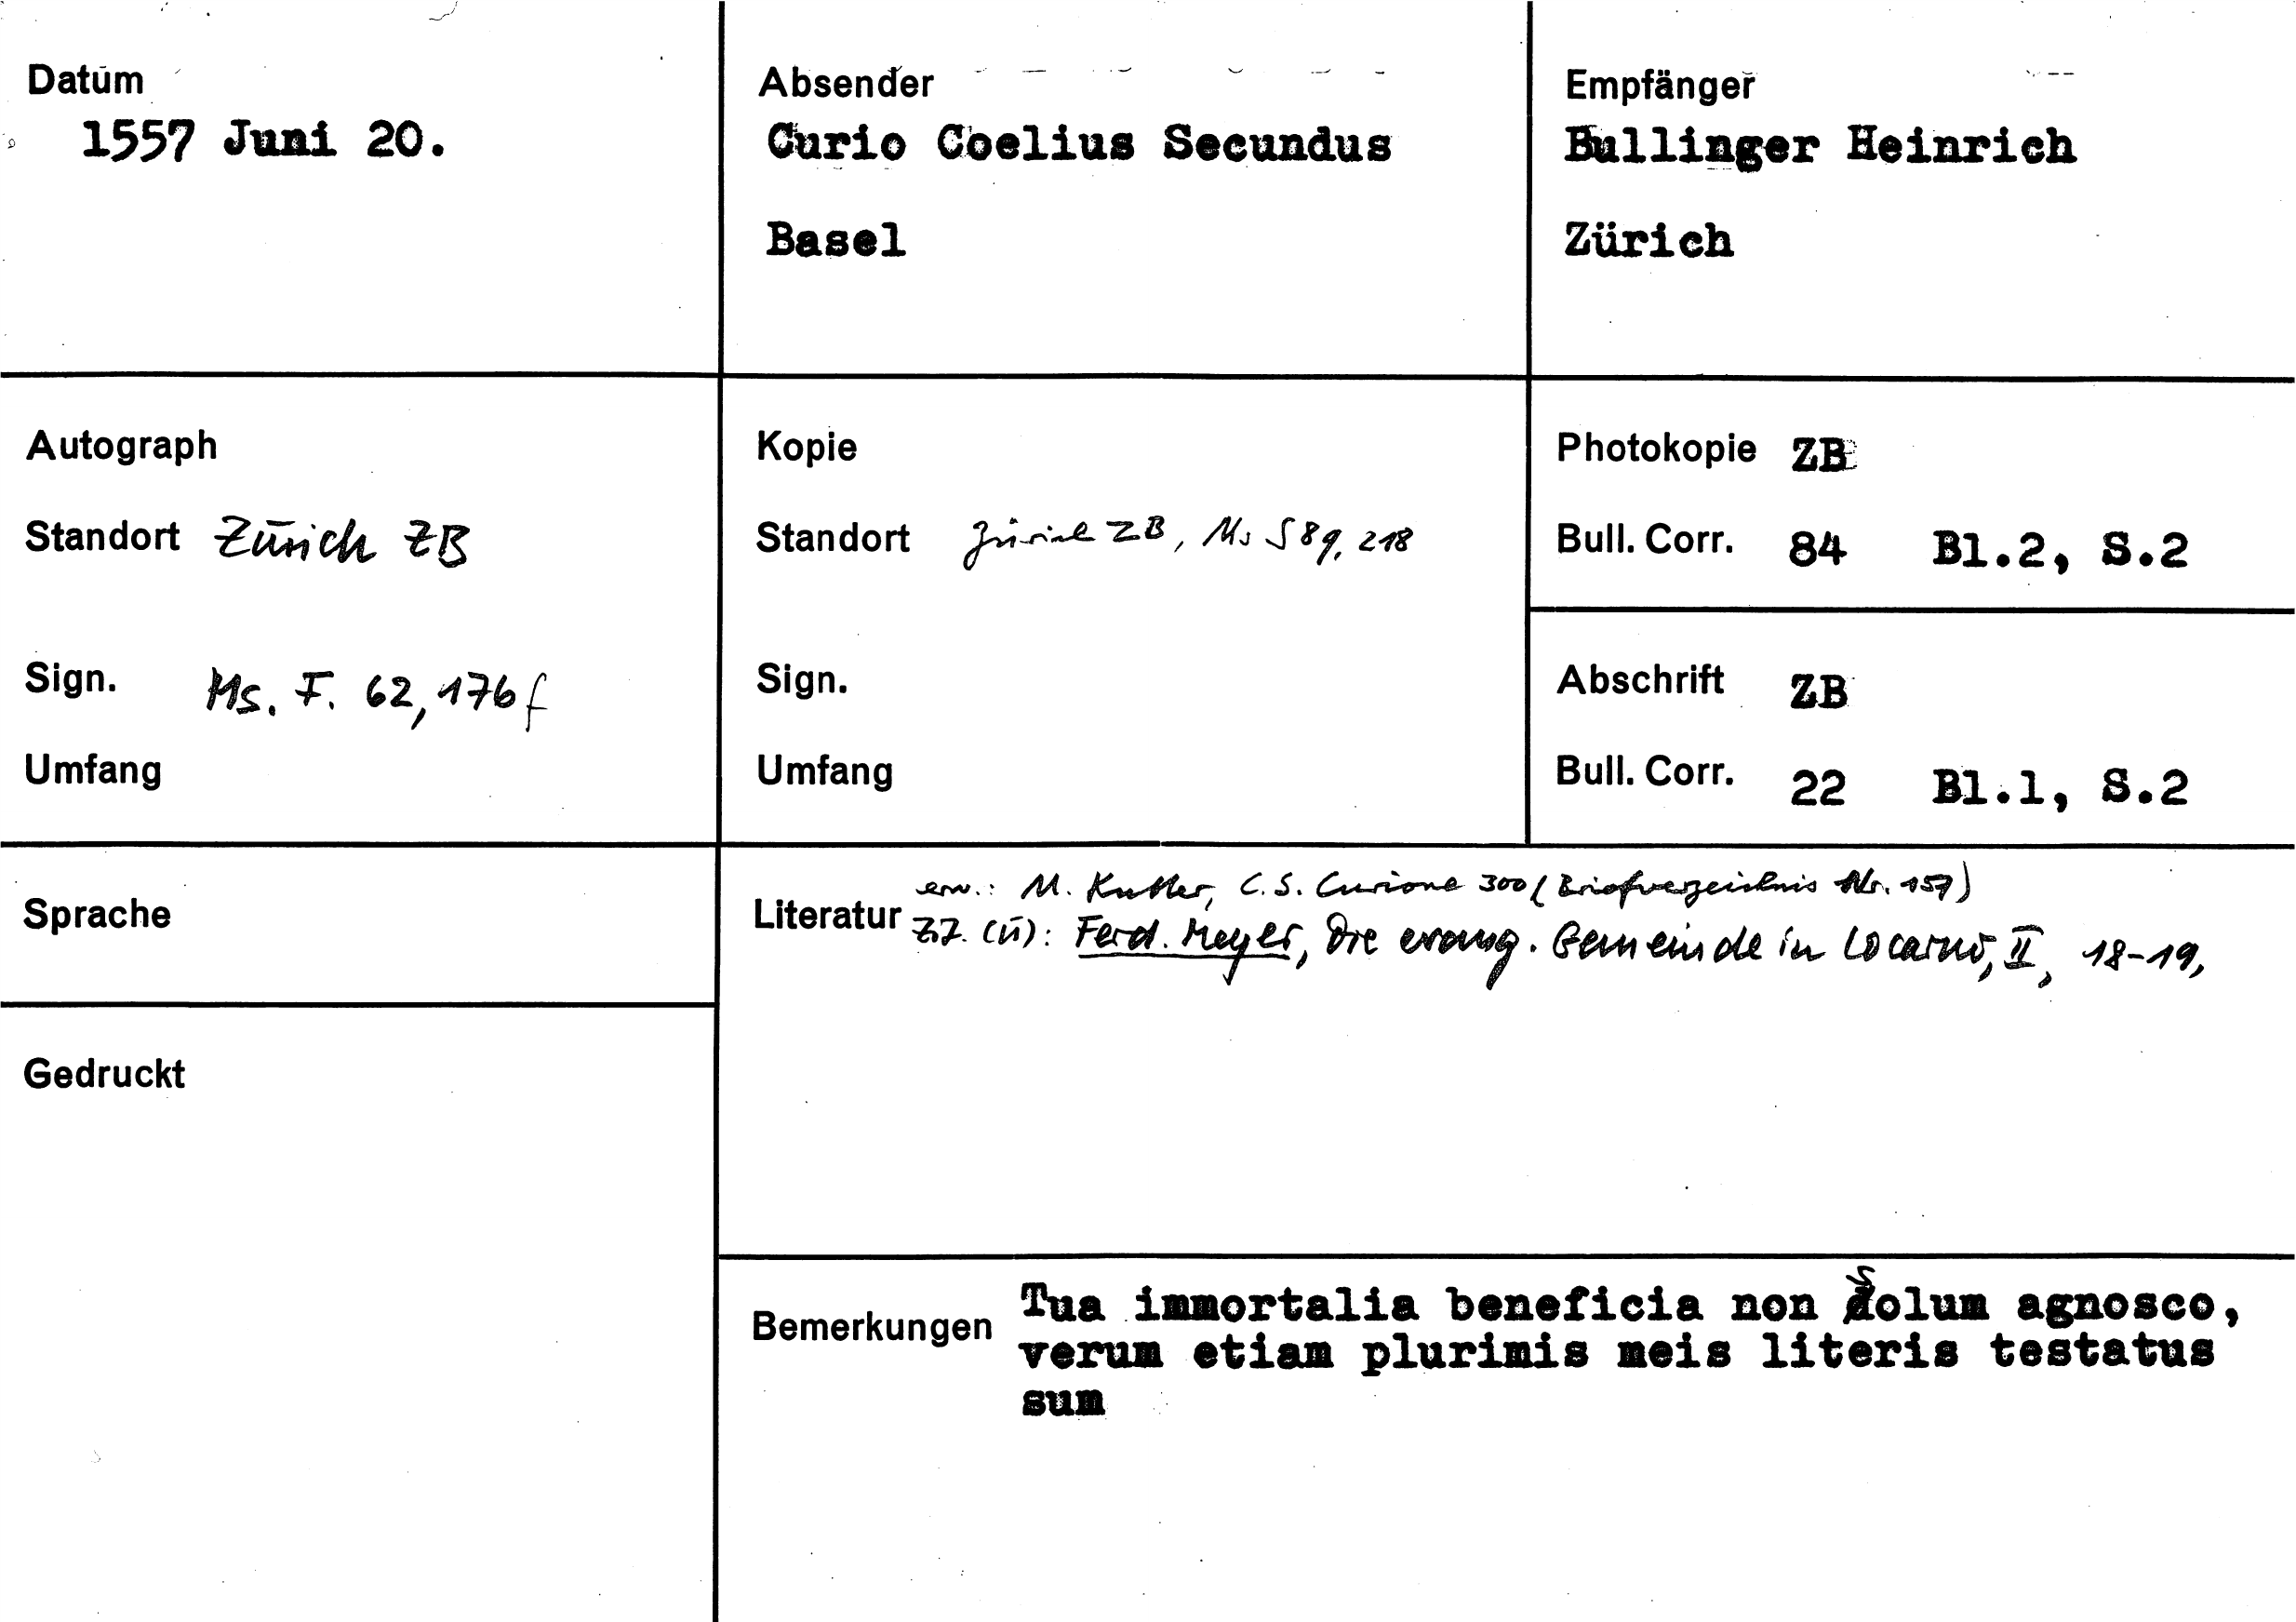 Datum
1557 Juni 20.
Absender
Curio Coelius Secundus
Basel
Empfänger
Bullinger Heinrich
Zürich
Autograph
Standort Zürich ZB
Sign. Ms. F. 62,176f
Umfang
Kopie
Standort Zürich ZB, Ms S 89, 218
Sign.
Umfang
Photokopie ZB
Bull. Corr. 84 Bl.2, S.2
Abschrift ZB
Bull. Corr. 22 Bl.1, S.2
Sprache
Gedruckt
Literatur
erw.: M. Kutter, C. S. Curione 300 (Briefverzeichnis Nr. 157)
Zit. (ü): Ferd. Meyer, Die evang. Gemeinde in Locarno, II, 18-19,
Bemerkungen
Tua immortalia beneficia non solum agnosco,
verum etiam plurimis meis literis testatus
sum